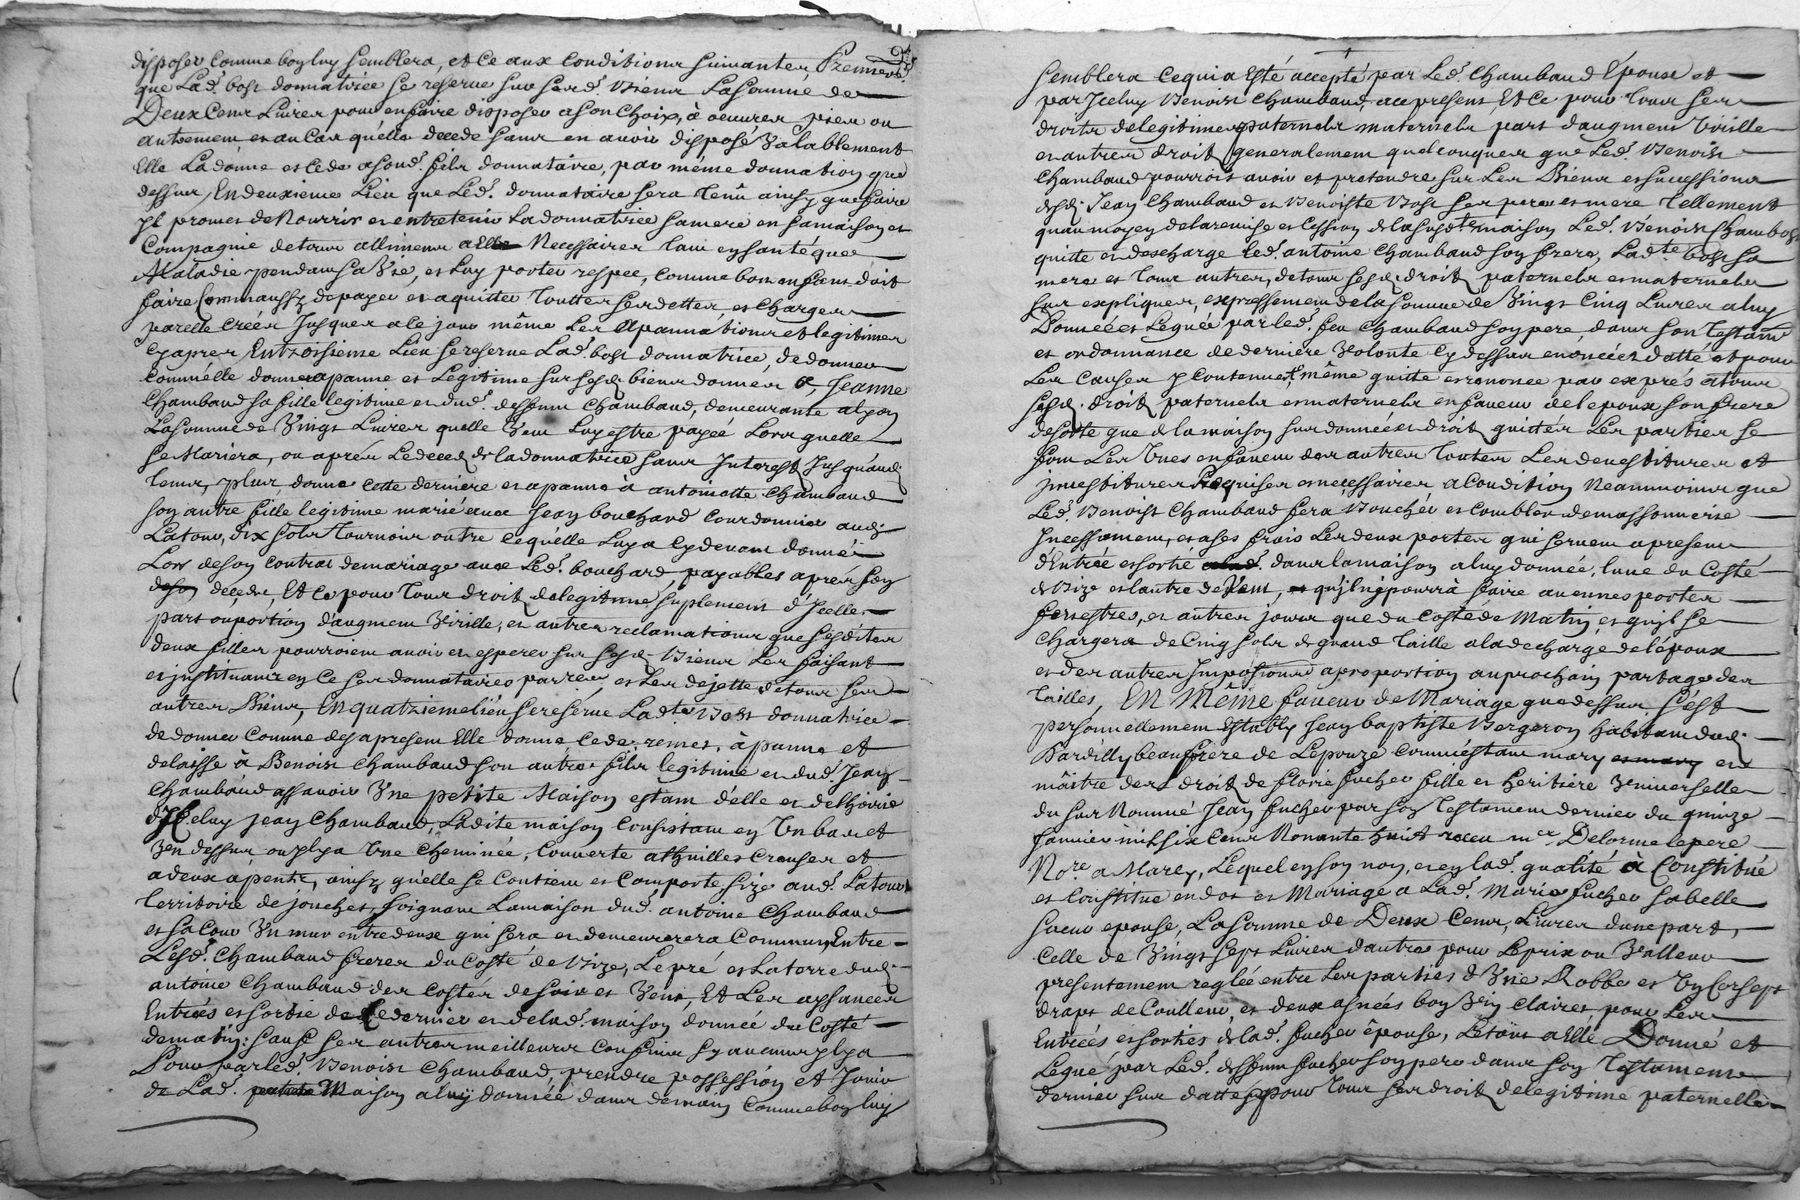 disposer comme bon luy semblera, et ce aux conditions suivantes Premiere
que Lad. bost donnatrice se reserve sur sesd. Biens La somme de
Deux Cens Livres pour en faire disposer a son choix, à oeuvres pies ou
autrement et au Cas quelle decede sans en avoir disposé Valablement
Elle La donne et cede a sond. fils donnataire, par même donnation que
dessus, En deuxieme Lieu que Led. donnataire sera tenû ainsy que faire
Jl promet de Nourrir et entretenir La donnatrice sa mere en sa maison et
Compagnie de tous allimens a Elle Necessaires tant en santé que
Maladie pendant sa Vie, et Luy porter respec, comme bon enfant doit
faire Comm'aussy de payer et aquitter touttes ses dettes, et charges
par elle creés Jusques a ce jour même Les Apannations et legitimes
cy apres En troisieme Lieu se reserve Lad. bost donnatrice, de donner
comm'elle donne apanne et Legitime sur sesd. biens donnés à Jeanne
Chambaud sa fille legitime et dud. deffunt Chambaud, demeurante a Lyon
La somme de Vingt Livres quelle Veut Luy estre payeé Lors quelle
se Mariera, ou aprés Le deced de la donnatrice sans Interest Jusqu'aud.
tems, plus donne cette derniere et apanne à antoinette Chambaud
son autre fille legitime marié avec Jean bouchard Courdonnier aud.
Latour, dix sols tournois outre ce qu'elle Luy a cy devant donné
Lors de son contrat de mariage avec Led. bouchard, payables aprés son
deced, Et ce pour tous droits de legitime suplement d'Jcelle
part ou portion d'augment Virille, et autres reclamations que sesdites
deux filles pourroient avoir et esperer sur sesd. Biens Les faisant
et jnstituant en ce ses donnataires particuliers et Les dejette de tous ses
autres Biens, En quatrieme lieu se reserve Ladte. Bost donnatrice
de donner Comme des apresent Elle donne cede, remet, à panne et
delaisse à Benoist Chambaud son autre fils legitime et dud. Jean
Chambaud assavoir Vne petite Maison estant d'elle et de L'hoirie
d'Jceluy Jean Chambaud, Ladite maison Consistant en Vn bas et
Vn dessus ou il y a Vne Cheminée, Couverte a thuilles Creuses et
a deux à pente, ainsy qu'elle se Contient et Comporte, size aud. Latour
territoire de jouches, joignant La maison dud. antoine Chambaud
et sa Cour Vn mur entre deux qui sera et demeurerera Commun Entre
Lesd. Chambaud freres du Costé de Bize, Le pré et La terre dud.
antoine Chambaud des Costés de soir et Vent, Et Les aysances
Entrées et sortie de Ce dernier et de lad. maison donneé du Costé
de matin: sauf ses autres meilleurs Confins sy aucuns y a
Pour par led. Benoist Chambaud, prendre possession et Jouir
de Lad. Maison a luy donneé dans demain comme bon luy
semblera Ce qui a Esté accepté par Led. Chambaud Epoux et
par Jceluy Benoist Chambaud, acy present, Et Ce pour tous ses
droits de legitimes paternels maternels part daugment Virille
et autres droits generalement quelconques que Led. Benoist
Chambaud pourroit avoir et pretendre sur Les Biens et successions
desd. Jean Chambaud et Benoiste Bost ses pere et mere tellement
quau moyen de la remise et Cession de la susdte. maison Led. Benoist Chambost
quitte et descharge Led. antoine Chambaud son frere, Ladte. bost sa
mere et tous autres, de tous sesd. droits paternels et maternels
sus expliqués, expressement de la somme de Vingt Cinq Livres a luy
Donneé et Legueé par led. feu Chambaud son pere, dans son testamt
et ordonnance de derniere Volonte cy dessus enoncéés datté et pour
Les Causes y Contenues, même quitte et renonce par exprés atous
sesd. droits paternels et maternels en faveur de l'epoux son frere
desorte que de la maison sus donneé et droits quittés Les parties se
font Les Vnes en faveur des autres toutes Les devestitures et
jnvestitures Requises et necessaires a Condition Neammoins que
Led. Benoist Chambaud fera Boucher et combler de massonnerie
Jncessament, et a ses frais Les deux portes qui servent apresent
d'Entrée et sortie dans la maison a luy donneé, lune du Costé
de Bize et lautre de Vent, qu'il ne pourra faire aucunes portes
fenestres, et autres jours que du Costé de Matin, et quil se
Chargera de Cinq sols de grand taille a la decharge de l'epoux
et des autres Jmpositions a proportion au prochain partage des
tailles, En Même faveur de Mariage que dessus s'est
personnellement Estably Jean baptiste Bergeron habitant dud.
Dardilly beaufrere de L'epouze Comme estant mary et
mâitre des droits de florie fucher fille et heritiere Vniverselle
du sus Nommé Jean fucher par son testament dernier du quinze
Janvier mil six Cens Nonante huit receu mre. Delorme le pere
Nore. a Marcy, Lequel en son nom, et en lad. qualité à Constitué
et Constitue en dot et Mariage a Lad. Marie fucher sa belle
soeur epouse, La somme de Deux Cens Livres dune part,
Celle de Vingt sept Livres dautre pour Le prix ou Valleur
presentement reglée entre Les parties d'Vne Robbe et Vn Corsept
drapt de Coulleur, et deux asnées bon Vin clairet, pour Les
Entrées et sorties de lad. fucher êpouse, Le tout a Elle Donné et
Legué par Led. deffunt fucher son pere dans son testament
dernier sus datté, pour tous ses droits de legitime paternelle